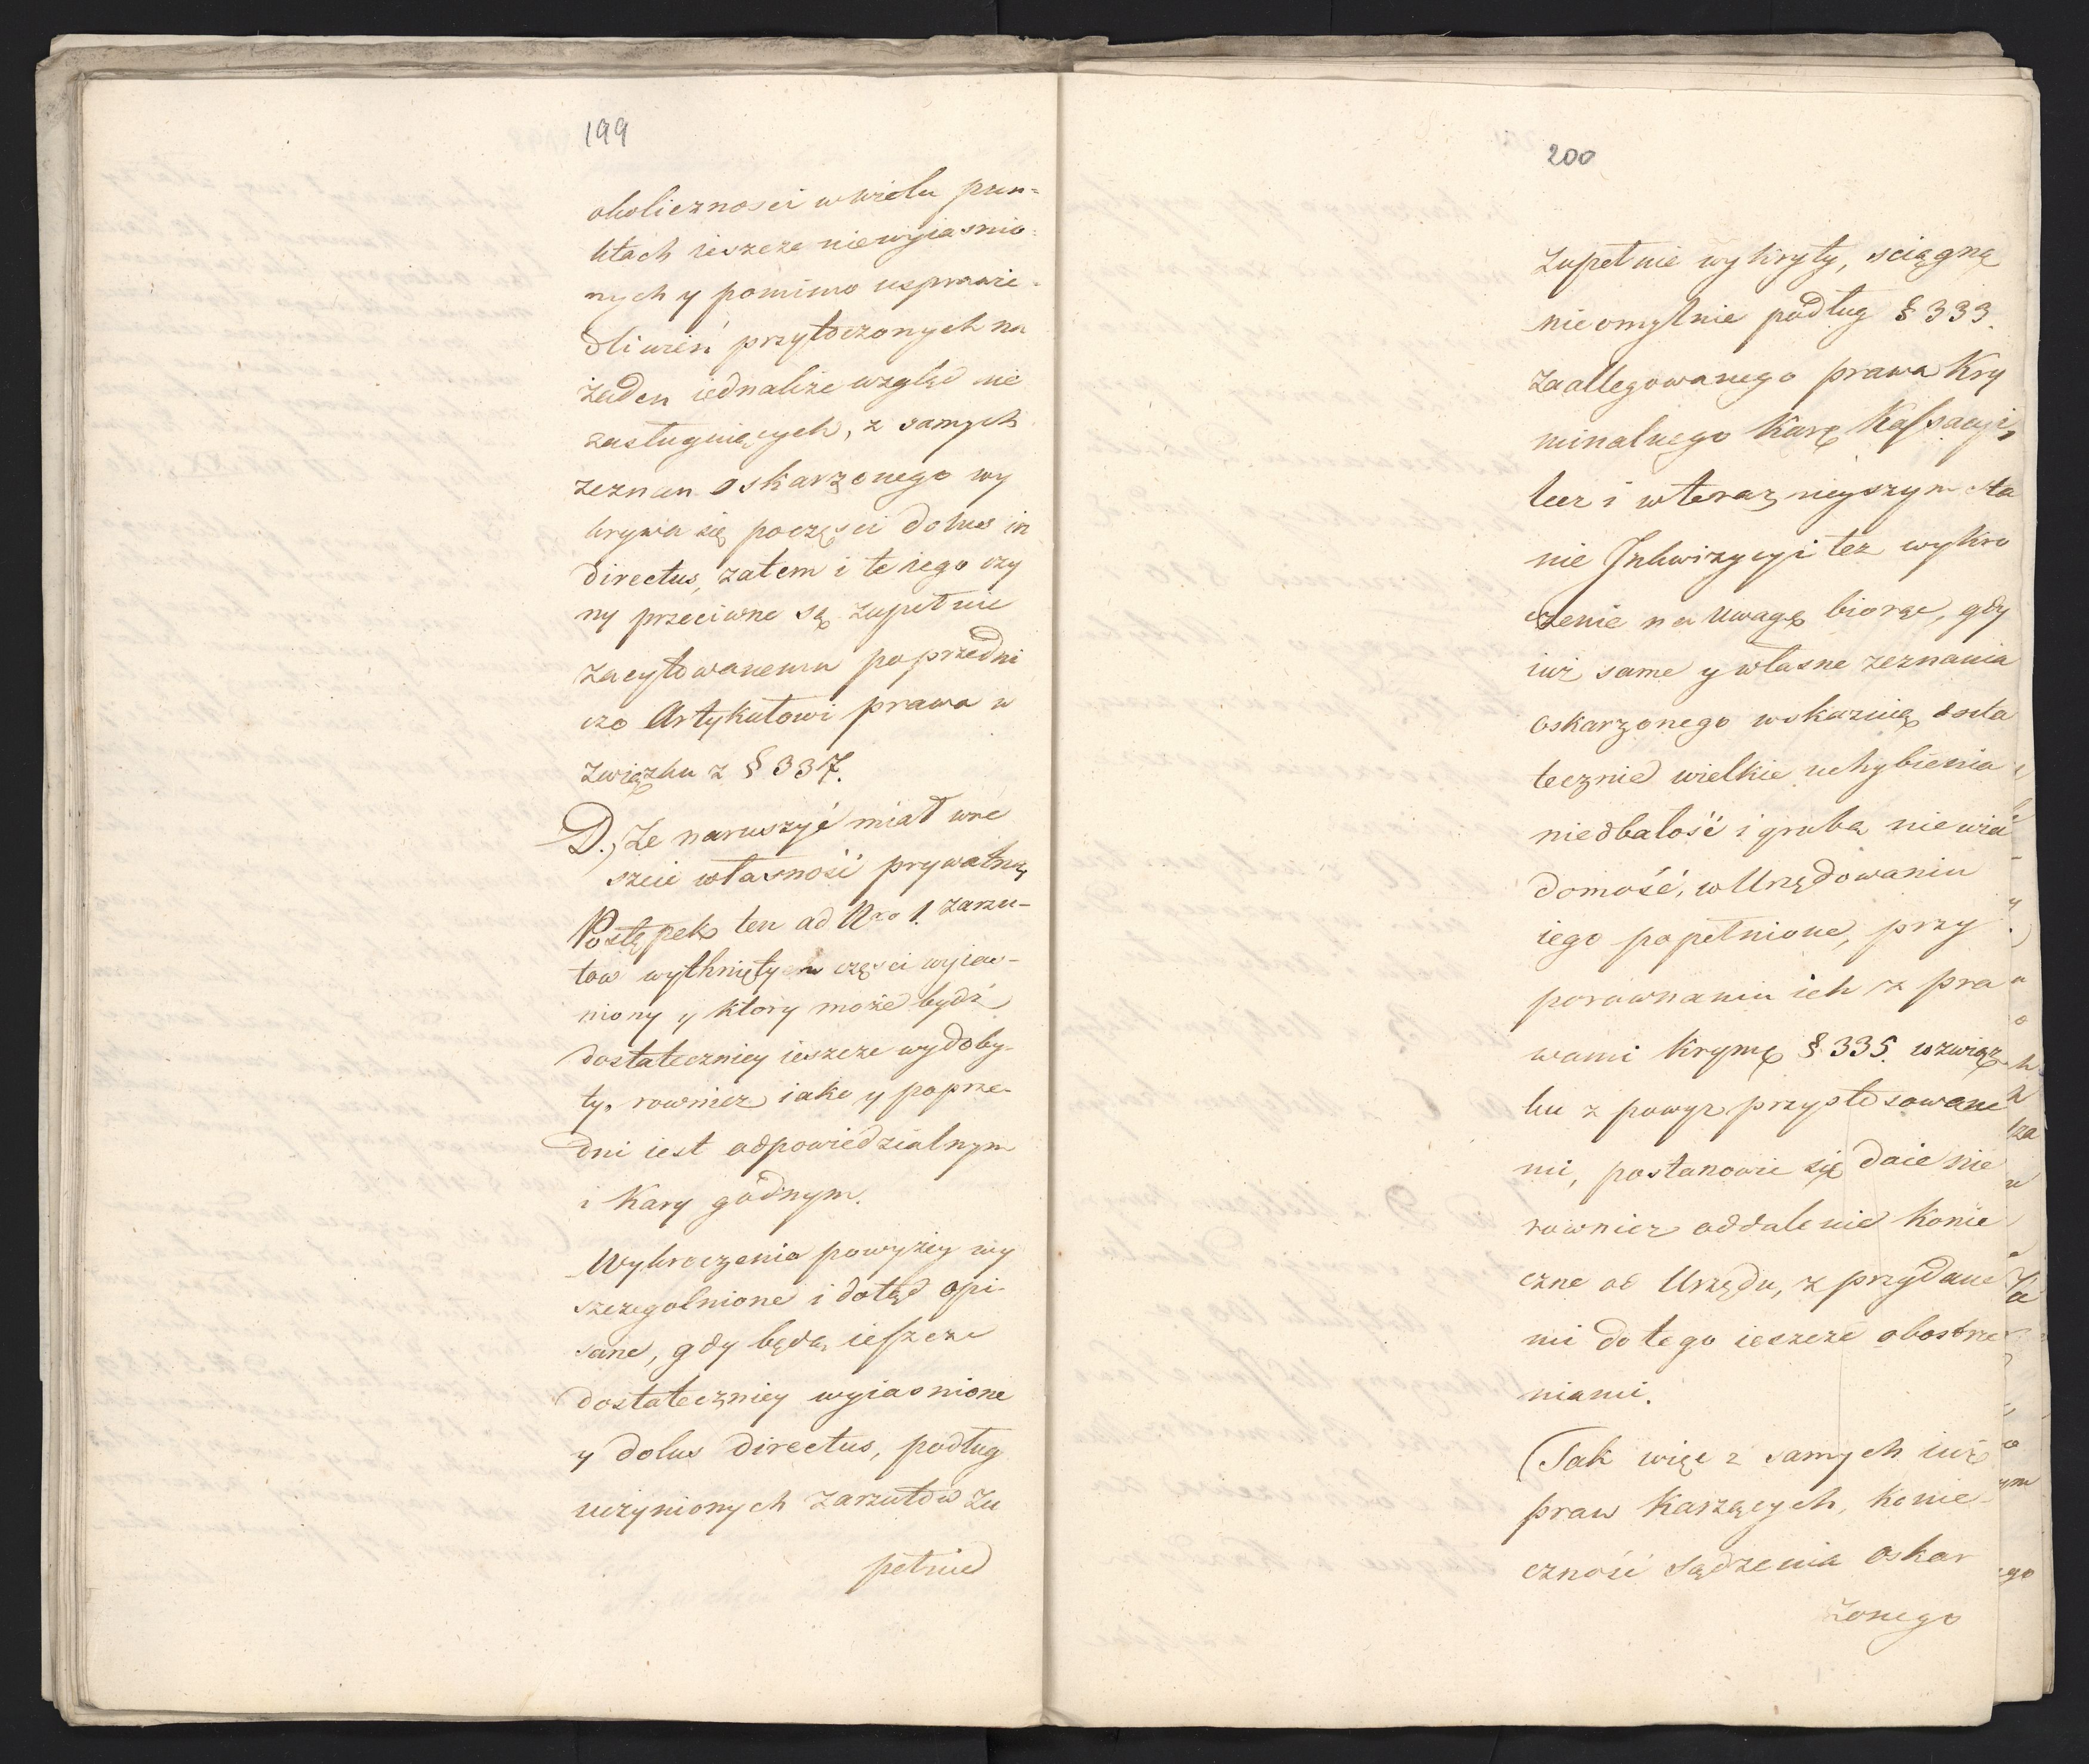 199
okolicznosci w wielu pun=
ktach ieszcze niewyiasnio=
nych y pomimo usprawie=
dliwień przytoczonych na
żaden iednakże wzgląd nie
zasługuiących, z samych
zeznan oskarzonego wy
krywa się poczęsci dolus in
directus, zatem i te iego czy
ny przeciwne są zupełnie
zacytowanemu poprzedni
czo Artykułowi prawa w
związku z § 337.
D., Ze naruszyć miał wre
szcie własność prywatną
Postępek ten ad Nro 1. zarzu-
tow wytknięty w częsci wyias-
niony y ktory może bydź
dostateczniey ieszcze wydoby-
ty, rownież iako y poprze-
dni iest odpowiedzialnym
i Kary godnym.
Wykroczenia powyżey wy
szczegolnione i dotąd opi-
sane, gdy będą ieszcze
dostateczniey wyiasnione
y dolus directus, podług
uczynionych zarzutow zu
pełnie
200
zupełnie wykryty, sciągną
nieomylnie podług § 333.
zaallegowanego prawa Kry
minalnego Karę Kassacyi,
lecz i w teraznieyszym sta
nie Inkwizycyi też wykro
czenie na uwagę biorąc, gdy
iuż same y własne zeznania
oskarzonego wskazuią osta
tecznie wielkie uchybienia
niedbałość i grubą niewia
domość, w Urzędowaniu
iego popełnione, przy
porownaniu ich z pra
wami Krymę § 335. w związ
ku z powyż przystosowane
mi, postanowić się daie nie
rownież oddalenie Konie
czne od Urzędu, z przydane
mi do tego ieszcze obostrze
niami.
Tak więc z samych iuż
praw Karzących, konie
czność sądzenia oskar
żonego